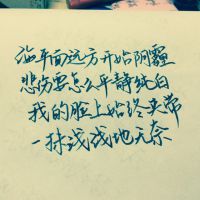 海平面远方开始阴霾
悲伤要怎么平静纯白
我的脸上始终夹带
一抹浅浅地无奈